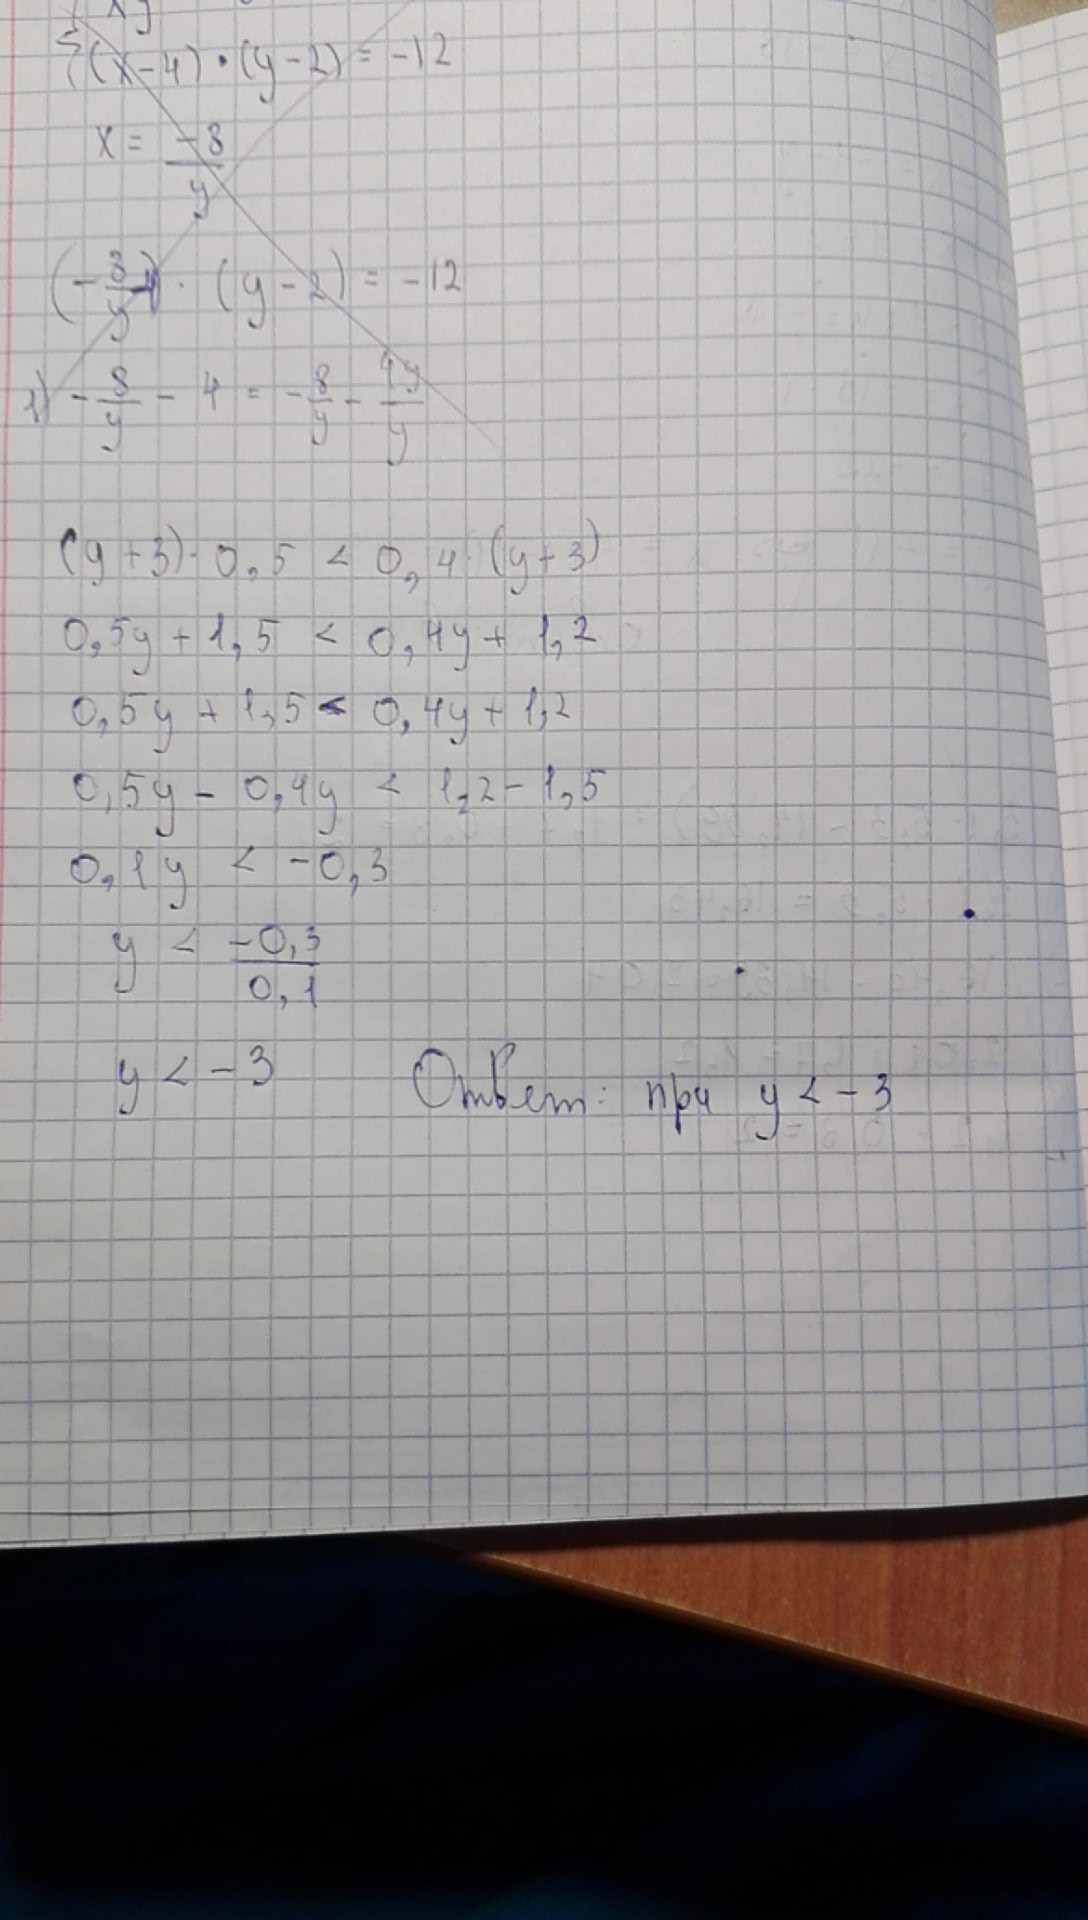 {(x-4)·(y-2) = -12
x = -8/y
(-8/y-4)·(y-2) = -12
1) -8/y - 4 = -8/y - 4y/y
(y+3)·0,5 < 0,4·(y+3)
0,5y + 1,5 < 0,4y + 1,2
0,5y + 1,5 < 0,4y + 1,2
0,5y - 0,4y < 1,2 - 1,5
0,1y < -0,3
y < -0,3/0,1
y < -3 Ответ: при y < -3